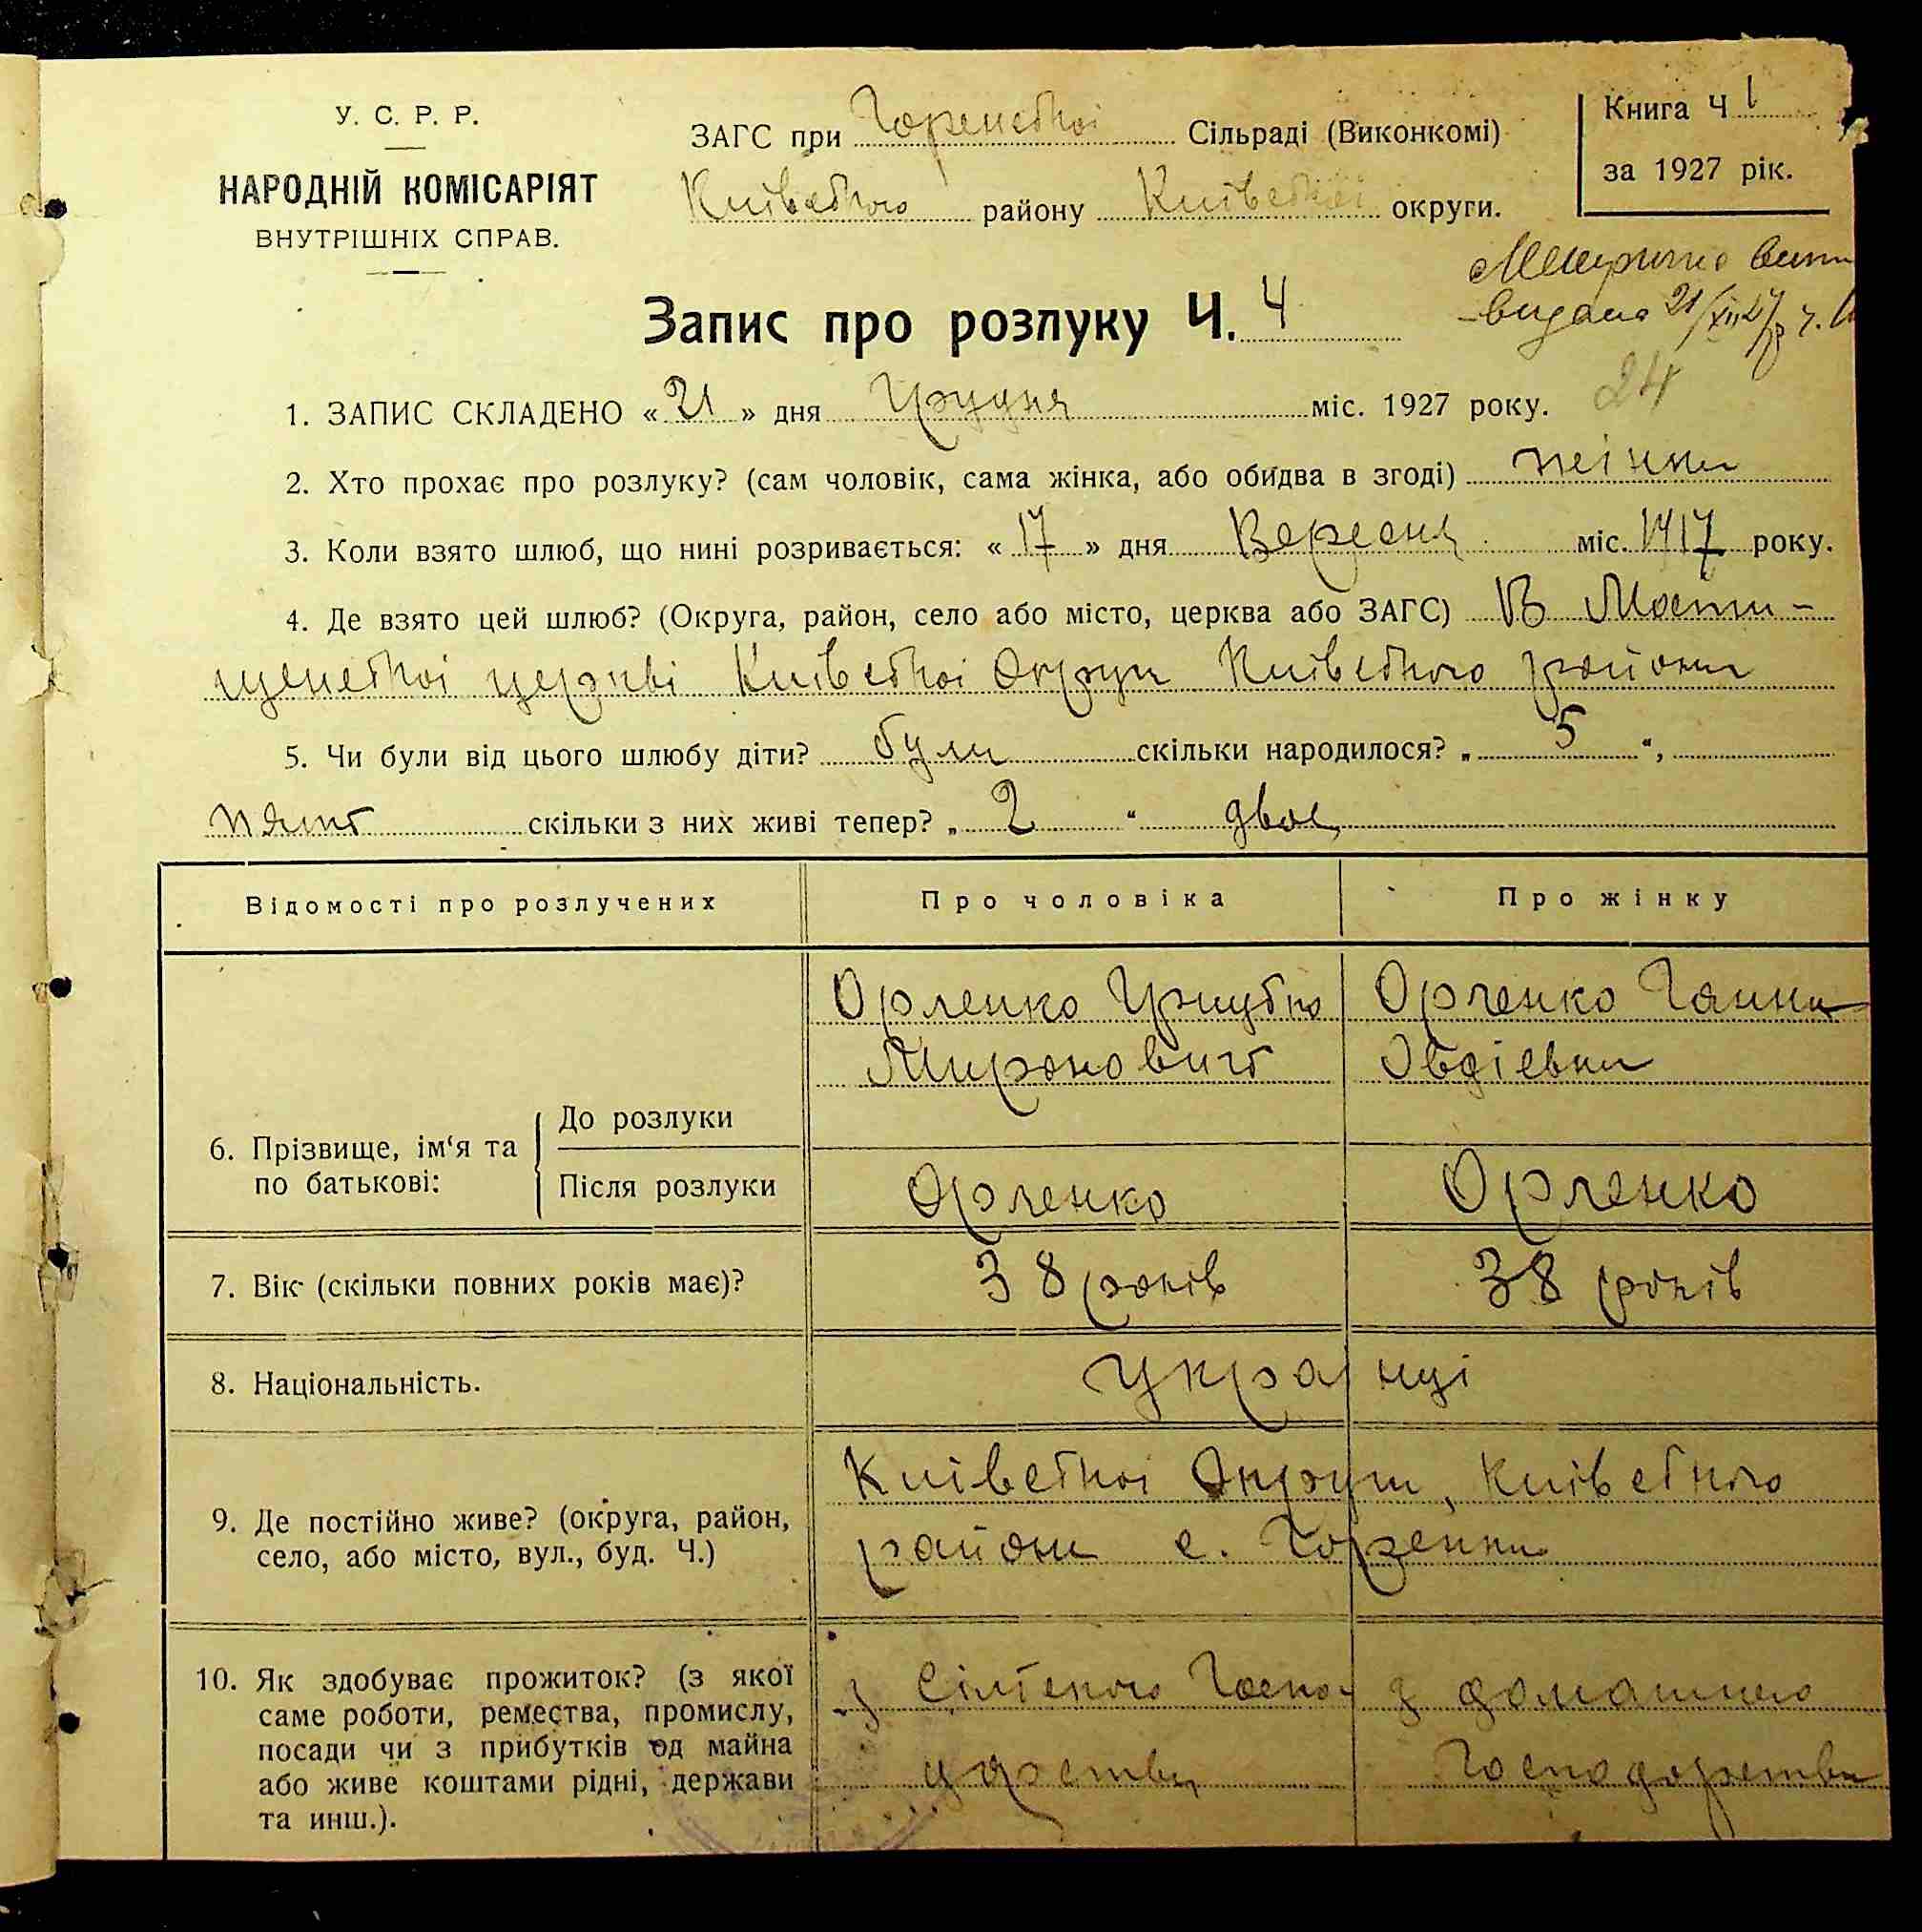 У. С. Р. Р.
НАРОДНІЙ КОМІСАРІЯТ
ВНУТРІШНІХ СПРАВ.
ЗАГС при Горенської Сільраді (Виконкомі)
Київського району Київської округи.
Книга Ч 1
за 1927 рік.
видана 21/XII 27 р. ч.
Запис про розлуку Ч. 4
24
1. ЗАПИС СКЛАДЕНО « 21 » дня Грудня міс. 1927 року.
2. Хто прохає про розлуку? (сам чоловік, сама жінка, або обидва в згоді) жінка
3. Коли взято шлюб, що нині розривається: « 17 » дня Вересня міс. 1917 року.
4. Де взято цей шлюб? (Округа, район, село або місто, церква або ЗАГС) В Мости-
щенської церкві Київської Округи Київського району
5. Чи були від цього шлюбу діти? були скільки народилося? „ 5 “,
пять скільки з них живі тепер? „ 2 “ двоє
Відомості про розлучених
Про чоловіка
Про жінку
6. Прізвище, ім‘я та по батькові:
До розлуки
Орленко Грицько
Миронович
Орленко Ганна
Овдієвна
Після розлуки
Орленко
Орленко
7. Вік (скільки повних років має)?
38 років
38 років
8. Національність.
Українці
9. Де постійно живе? (округа, район,
село, або місто, вул., буд. Ч.)
Київської Округи, Київського
району с. Горенка
10. Як здобуває прожиток? (з якої
саме роботи, ремества, промислу,
посади чи з прибутків од майна
або живе коштами рідні, держави
та инш.).
з Сільського Госпо-
дарства
з домашнього
Господарства